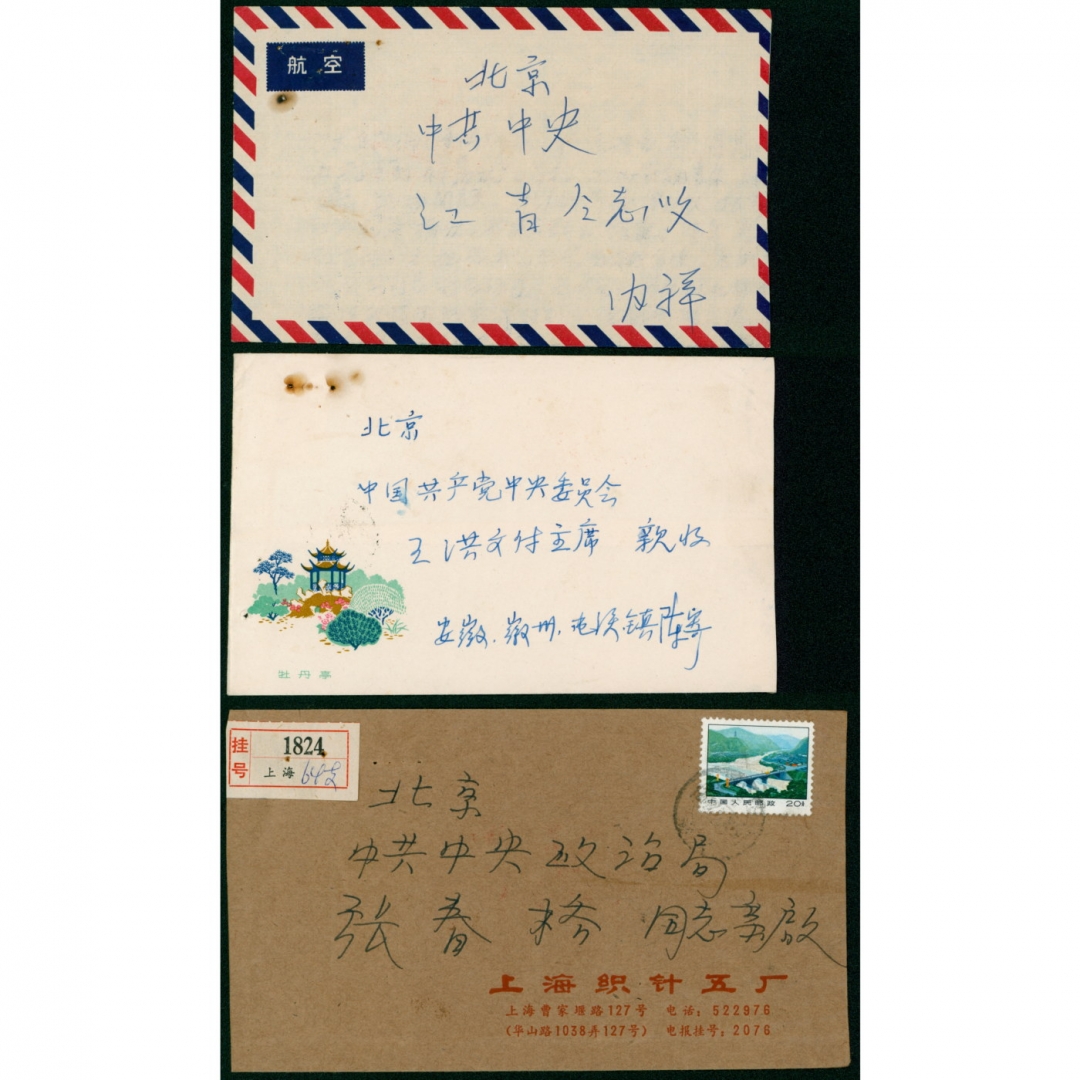 航空
北京
中共中央
江青仝志收
内祥
北京
中国共产党中央委员会
王洪文付主席 亲收
安徽.徽州.屯溪镇陈寄
牡丹亭
挂号 1824
上海 64支
中国人民邮政 20分
北京
中共中央政治局
张春桥 同志亲启
上海织针五厂
上海曹家堰路127号 电话:522976
(华山路1038弄127号) 电报挂号:2076